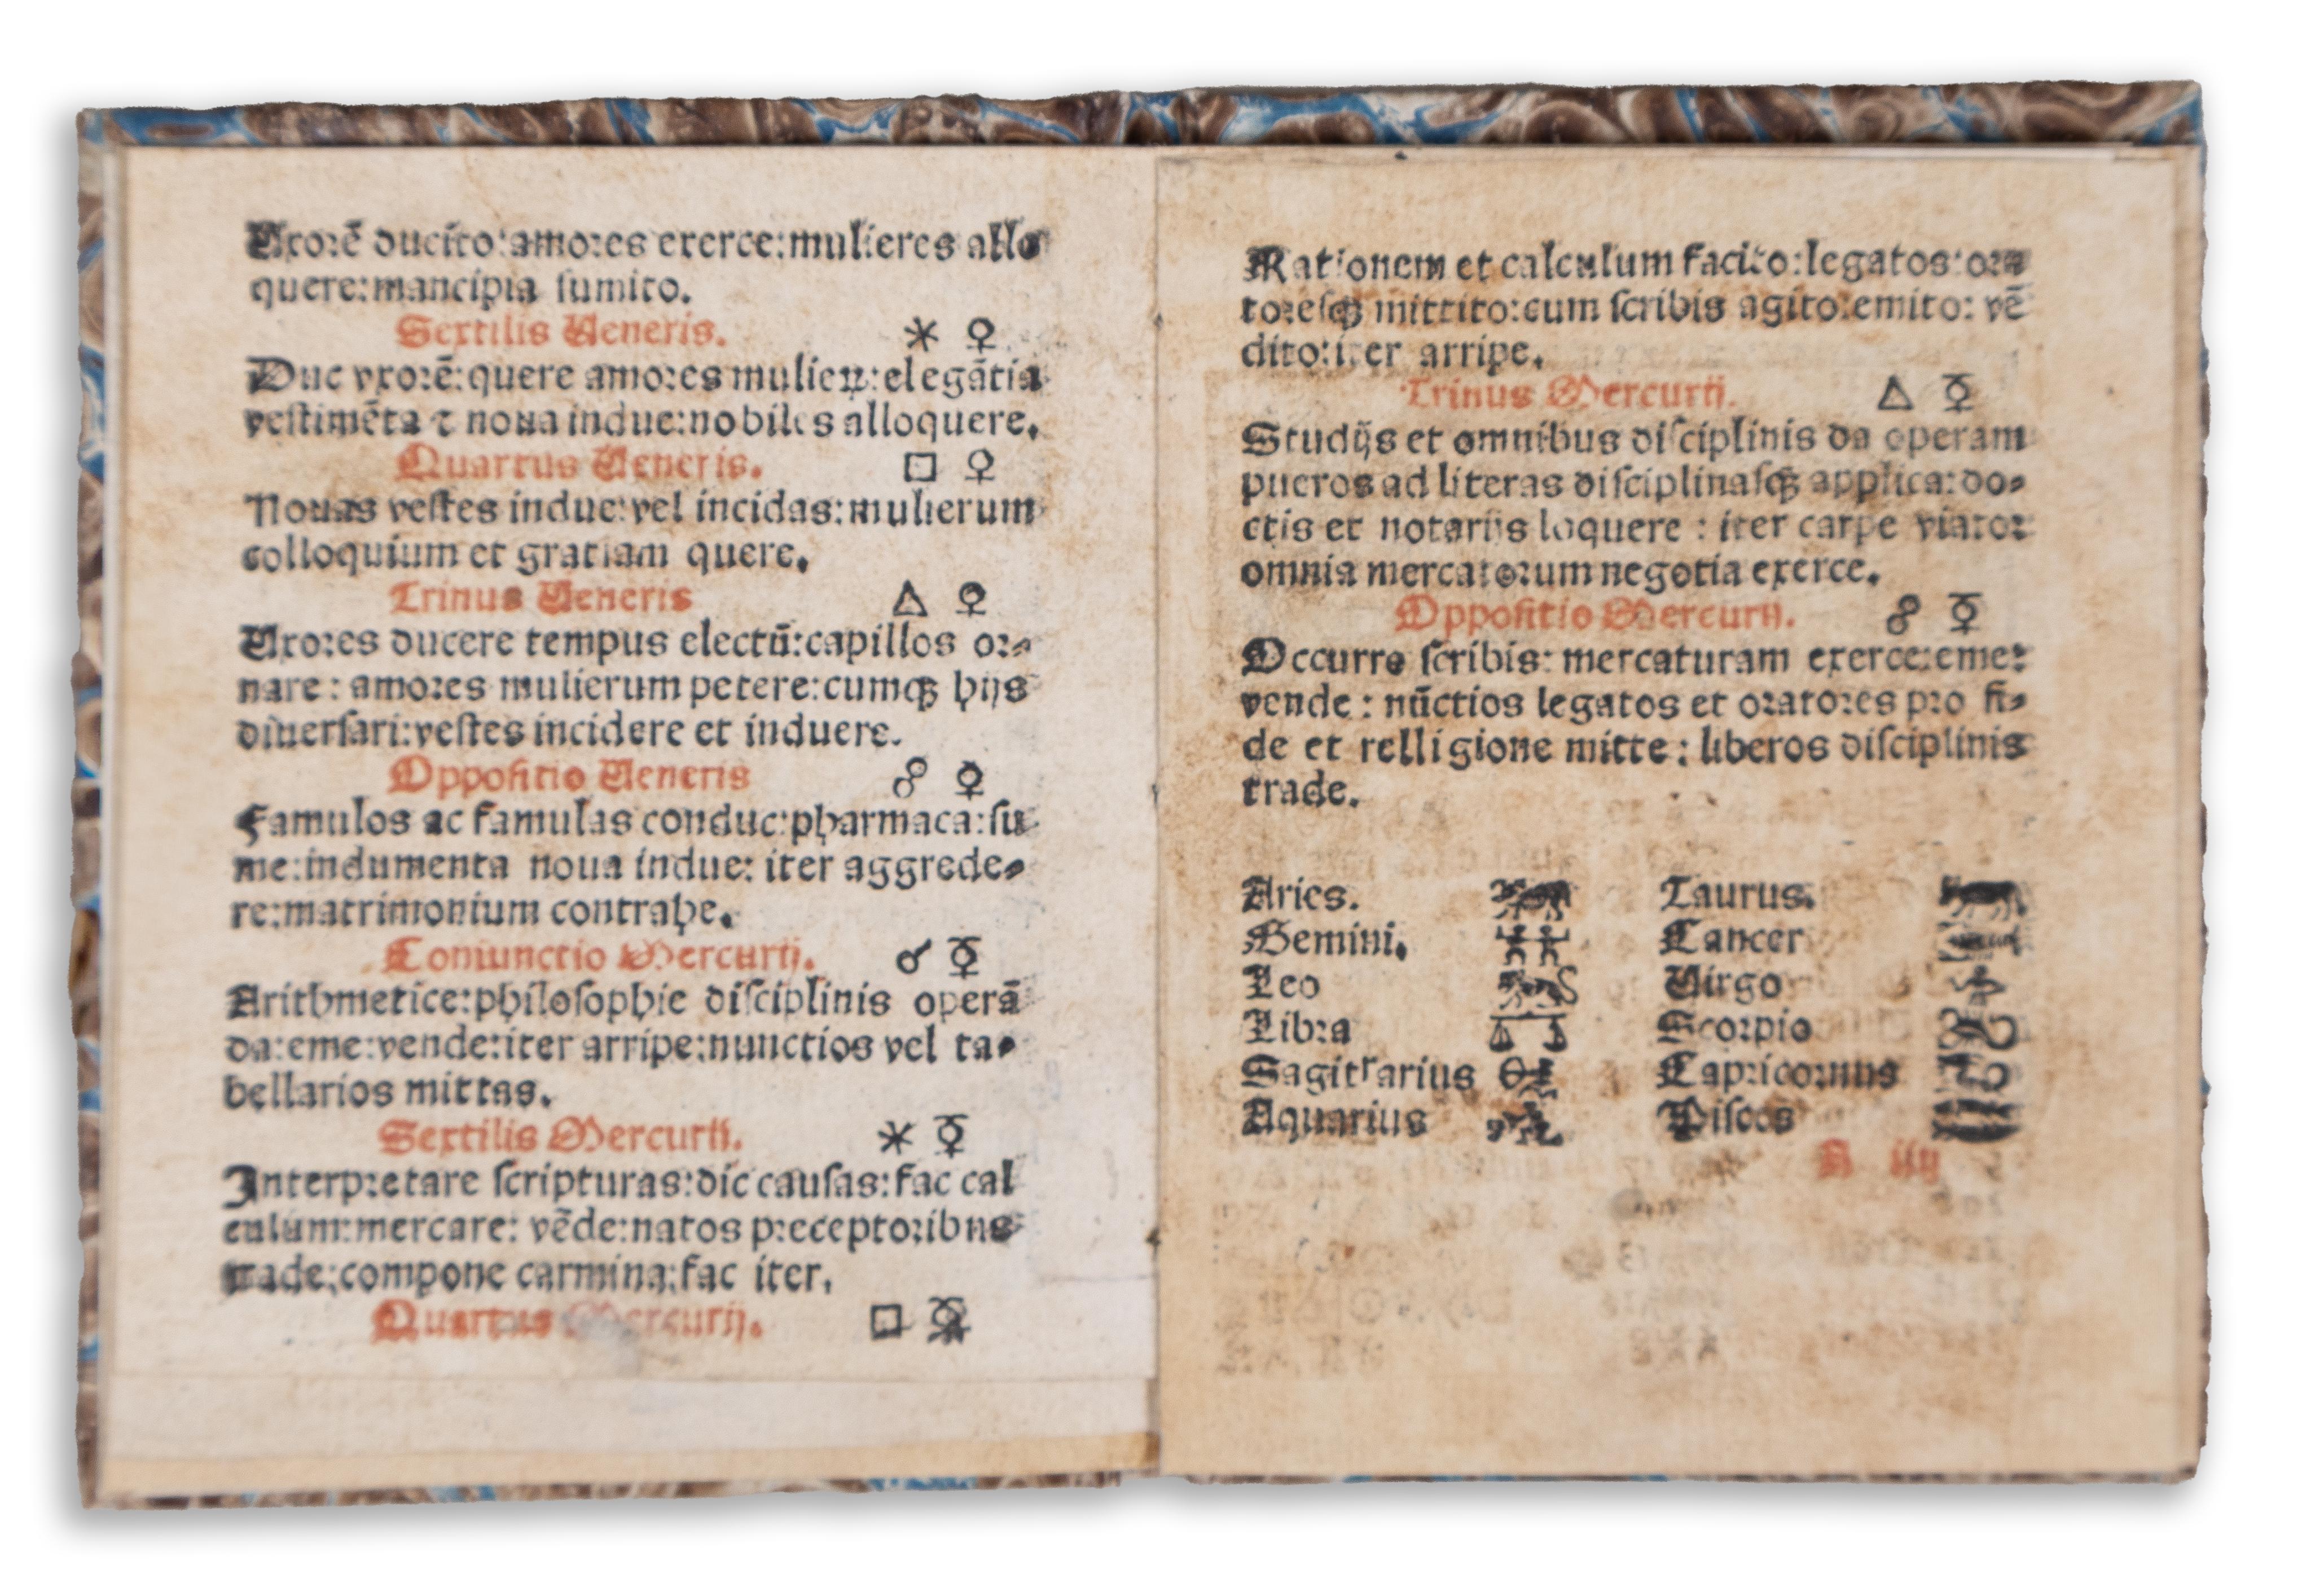 Uxorē ducito:amores exerce:mulieres allo
quere:mancipia sumito.
Sextilis Ueneris. ⚹ ♀
Duc vxorē:quere amores mulieꝝ:elegātia
vestimēta ⁊ noua indue:nobiles alloquere.
Quartus Ueneris. □ ♀
Nouas vestes indue:vel incidas:mulierum
colloquium et gratiam quere.
Trinus Ueneris △ ♀
Uxores ducere tempus electū:capillos or-
nare: amores mulierum petere:cumqꝫ hijs
diuersari:vestes incidere et induere.
Oppositio Ueneris ☍ ♀
Famulos ac famulas conduc:pharmaca:su
me:indumenta noua indue: iter aggrede-
re:matrimonium contrahe.
Coniunctio Mercurij. ☌ ☿
Arithmetice:philosophie disciplinis operā
da:eme:vende:iter arripe:nunctios vel ta-
bellarios mittas.
Sextilis Mercurij. ⚹ ☿
Interpretare scripturas:dic causas:fac cal
culum:mercare: vēde:natos preceptoribus
trade:compone carmina:fac iter.
Quartus Mercurij. □ ☿
Rationem et calculum facito:legatos:ora
toresqꝫ mittito:cum scribis agito:emito: vē
dito:iter arripe.
Trinus Mercurij. △ ☿
Studijs et omnibus disciplinis da operam
pueros ad literas disciplinasqꝫ applica:do-
ctis et notarijs loquere : iter carpe viator
omnia mercatorum negotia exerce.
Oppositio Mercurij. ☍ ☿
Occurre scribis: mercaturam exerce:eme:
vende: nūctios legatos et oratores pro fi-
de et relligione mitte: liberos disciplinis
trade.
Aries. Taurus.
Gemini. Cancer
Leo Uirgo
Libra Scorpio
Sagittarius Capricornus
Aquarius Pisces
A iiij